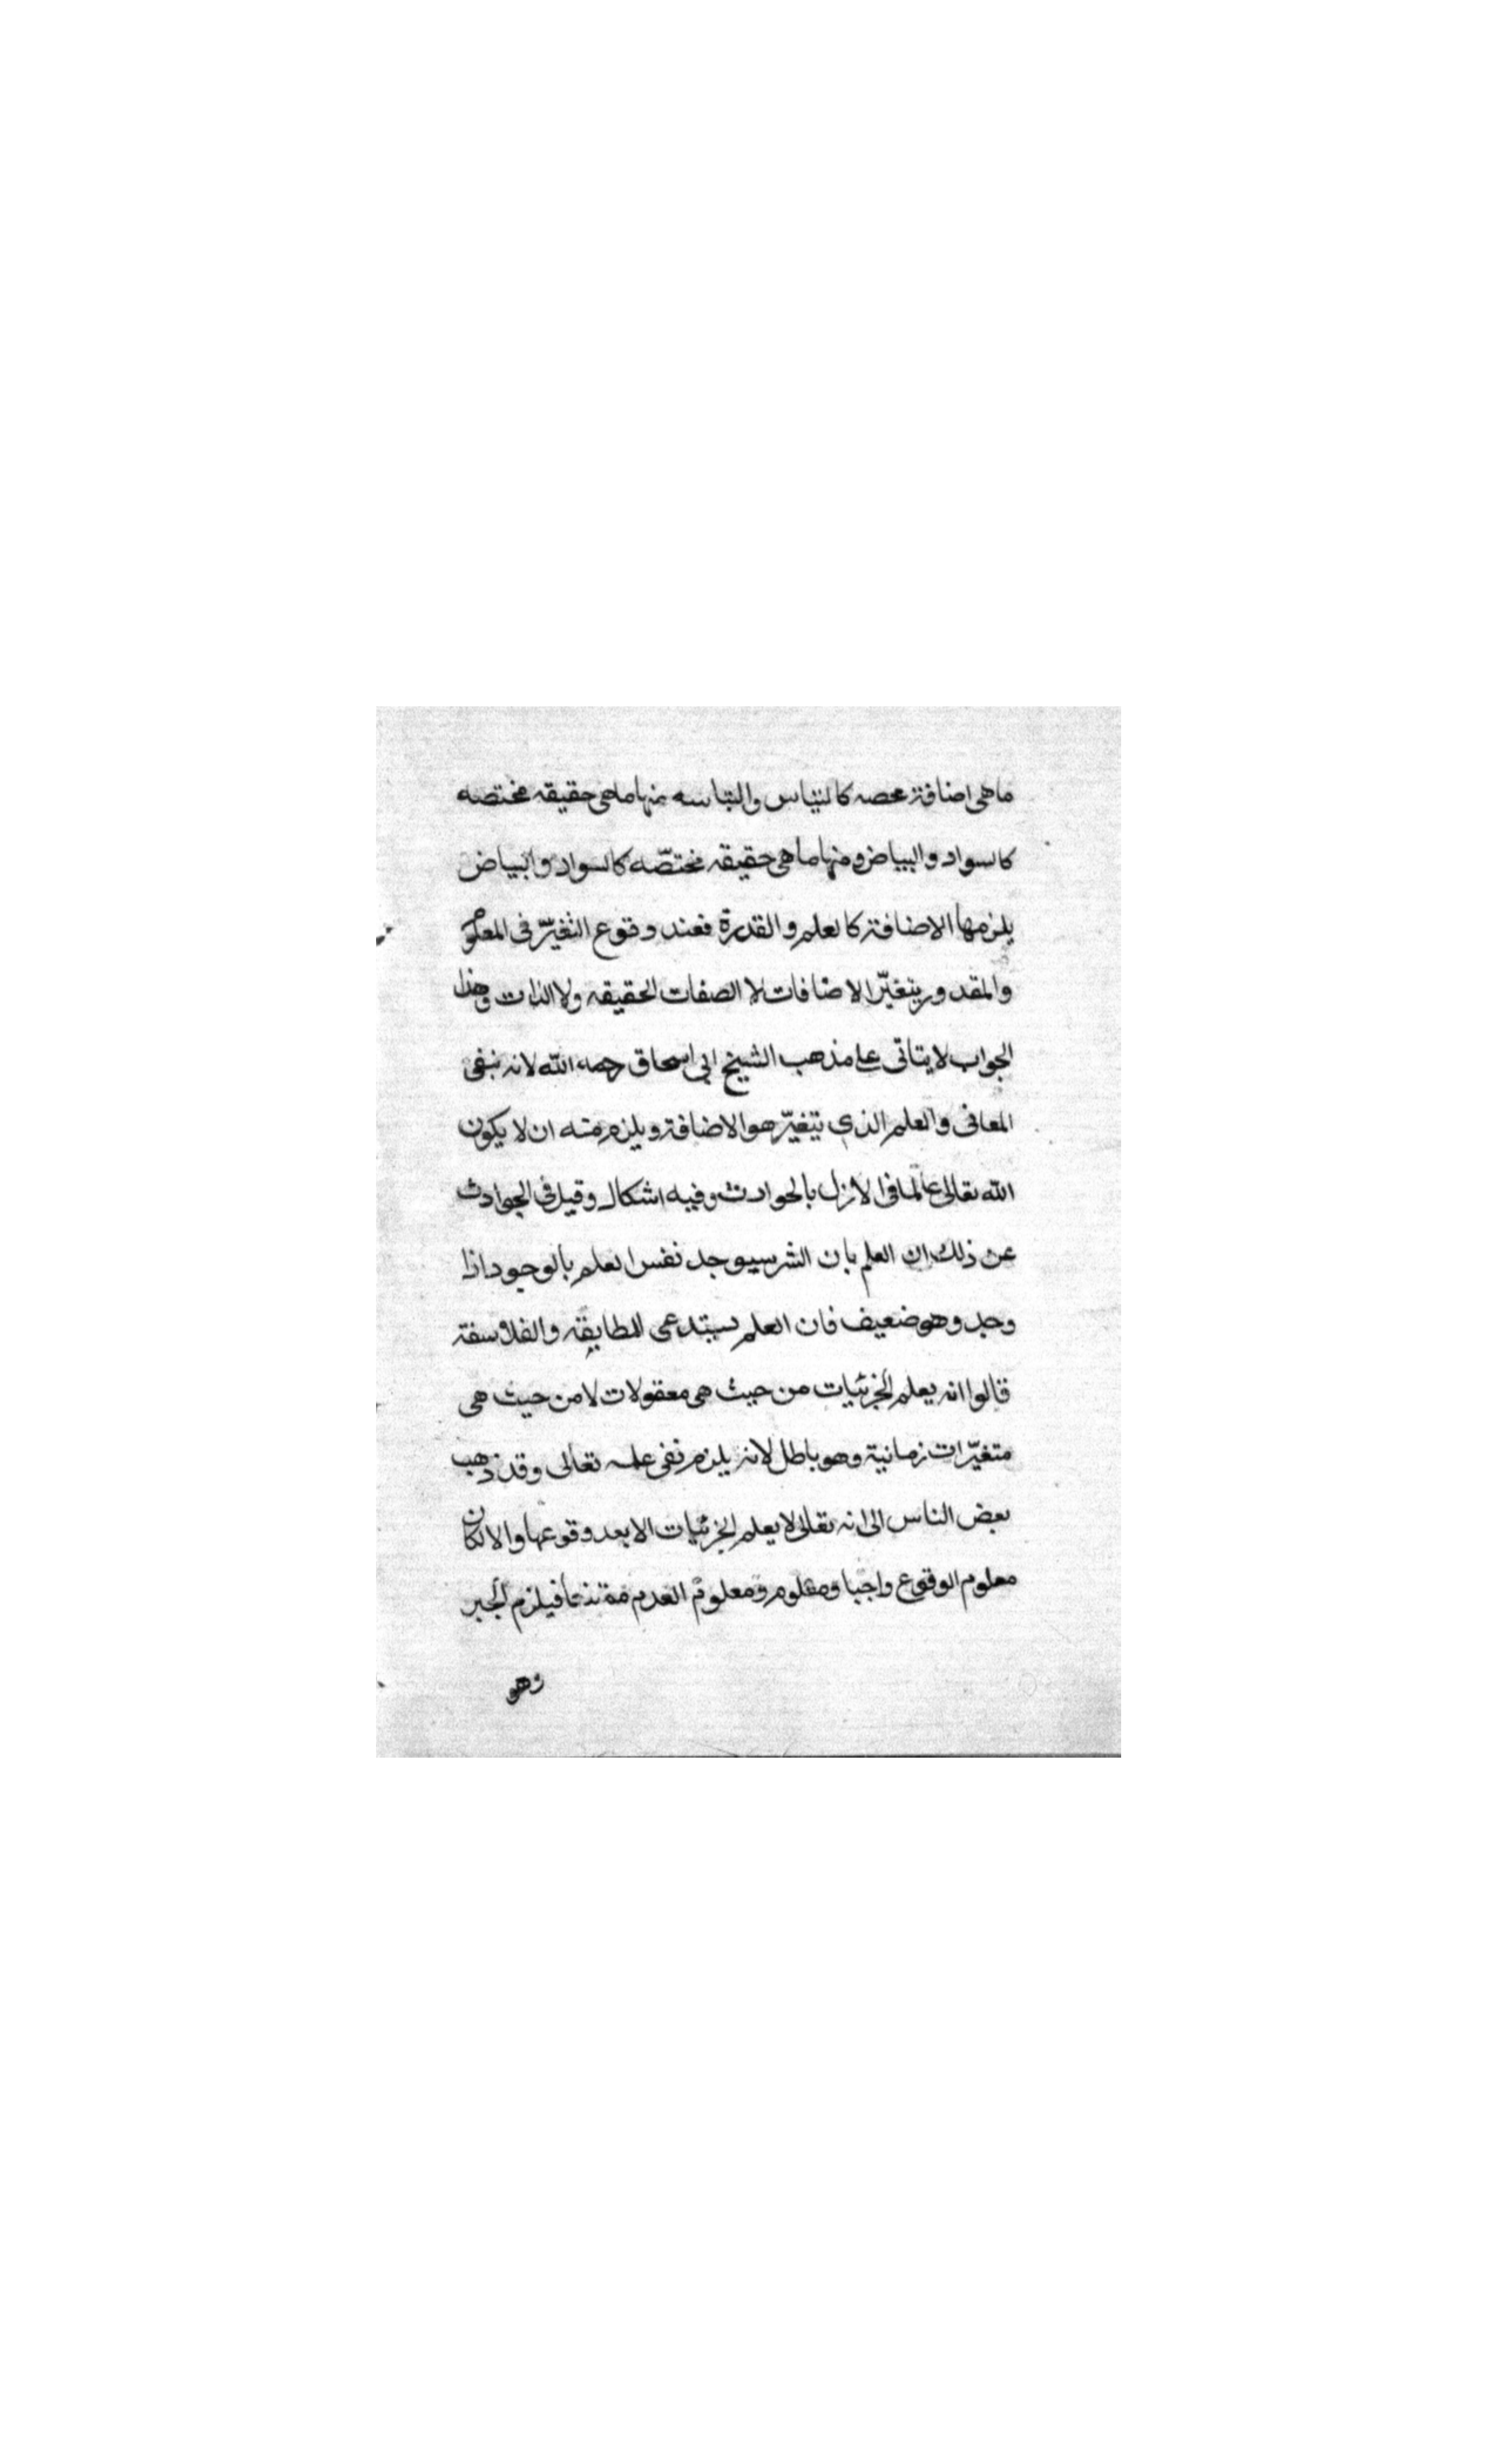 ما هى اضافة محصه كالتياس والتياسه منها ما هى حقيقه مختصه
كالسواد والبياض ومنها ما هى حقيقه مختصّه كالسواد والبياض
يلزمها الاضافة كالعلم والقدرة فعند وقوع التغيّر فى المعلوم
والمقدور يتغيّر الاضافات لا الصفات الحقيقه ولا الذات وهذا
الجواب لا يتاتى على مذهب الشيخ ابى اسحاق رحمه الله لانه ينفى
المعانى والعلم الذى يتغيّر هو الاضافة ويلزم منه ان لا يكون
الله تعالى عالما فى الازل بالحوادث وفيه اشكال وقيل فى الجوادث
عن ذلك ان العلم بان الشر سيوجد نفس العلم بالوجود اذا
وجد وهو ضعيف فان العلم يستدعى المطابقه والفلاسفة
قالوا انه يعلم الجزئيات من حيث هى معقولات لا من حيث هى
متغيّرات زمانية وهو باطل لانه يلزم نفى علمه تعالى وقد ذهب
بعض الناس الى انه تعالى لا يعلم الجزئيات الا بعد وقوعها والا لكان
معلوم الوقوع واجبا ومعلوم ومعلوم العدم فيلزم الجبر
وهو